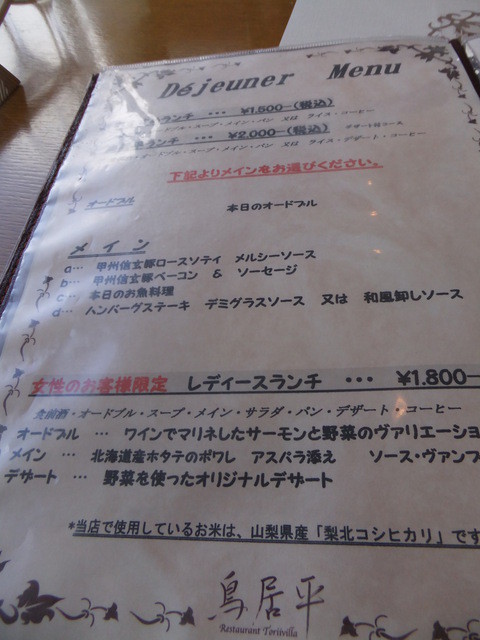 Déjeuner Menu
ランチ ・・・ ¥1,500-(税込)
オードブル・スープ・メイン・パン 又は ライス・コーヒー
ランチ ・・・ ¥2,000-(税込) デザート付コース
オードブル・スープ・メイン・パン 又は ライス・デザート・コーヒー
下記よりメインをお選びください。
オードブル 本日のオードブル
メイン
a… 甲州信玄豚ロースソテイ メルシーソース
b… 甲州信玄豚ベーコン & ソーセージ
c… 本日のお魚料理
d… ハンバーグステーキ デミグラスソース 又は 和風卸しソース
女性のお客様限定 レディースランチ ・・・ ¥1,800-
食前酒・オードブル・スープ・メイン・サラダ・パン・デザート・コーヒー
オードブル … ワインでマリネしたサーモンと野菜のヴァリエーショ
メイン … 北海道産ホタテのポワレ アスパラ添え ソース・ヴァンブ
デザート … 野菜を使ったオリジナルデザート
*当店で使用しているお米は、山梨県産「梨北コシヒカリ」です
鳥居平
Restaurant Toriivilla